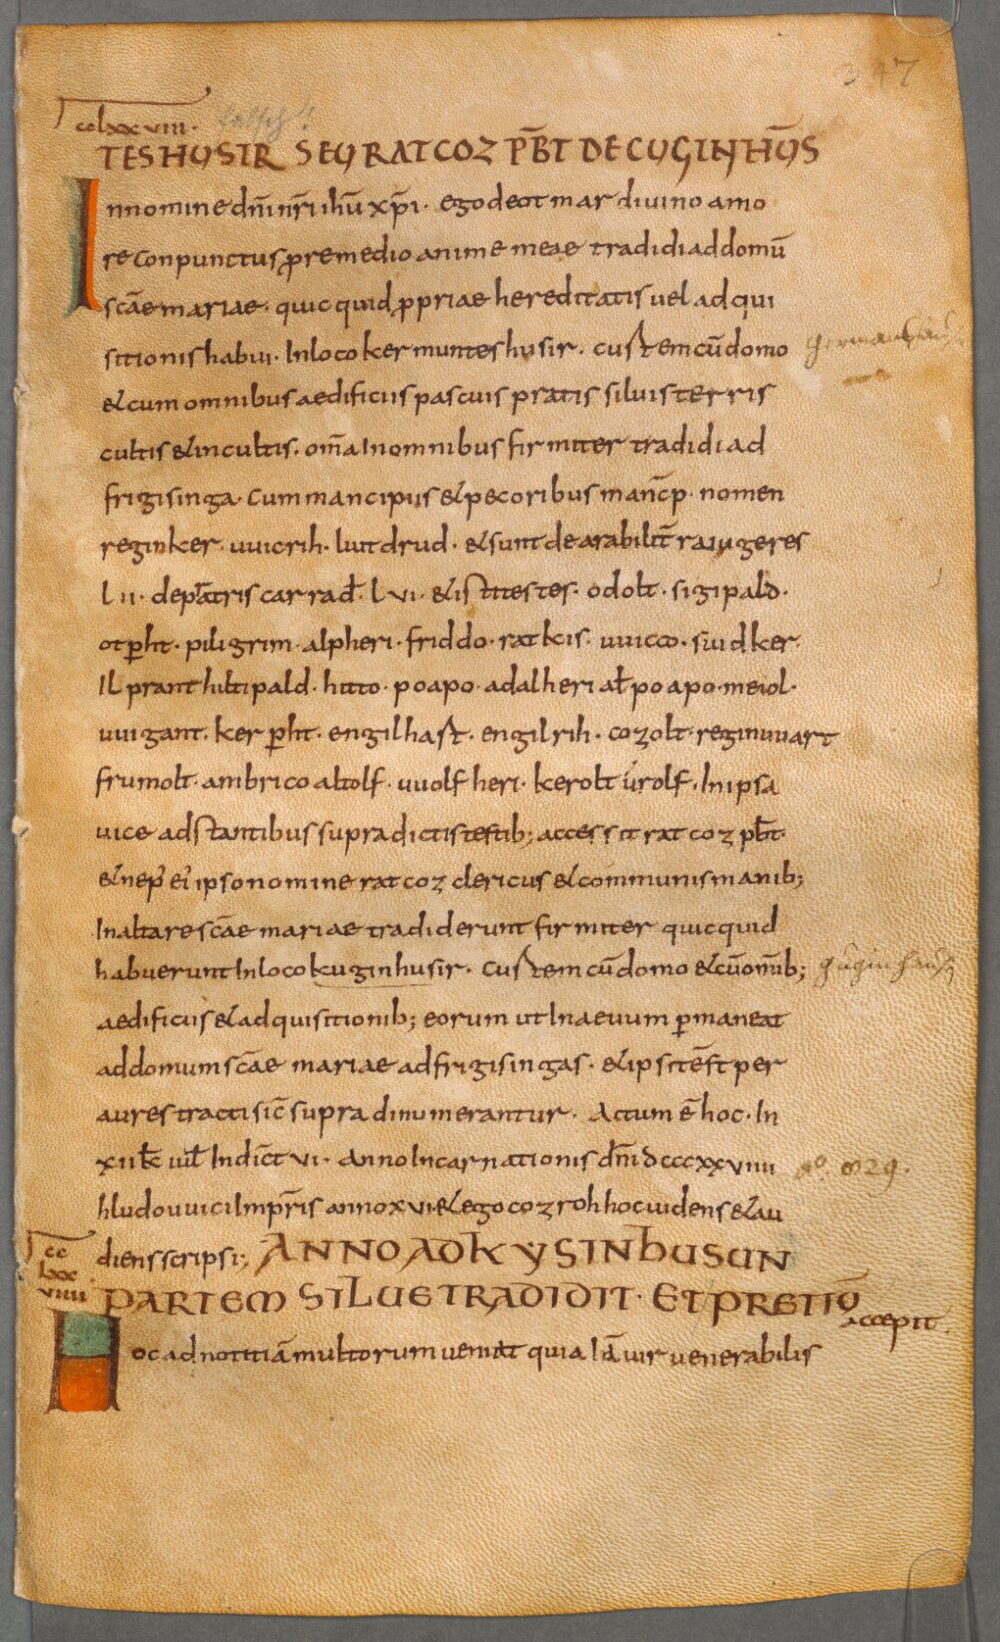 347
cclxxviii. falsch!
TESHUSIR SEU RATCOZ P̄B̄T DE CUGINHŪS
Innomine dn̄i nr̄i ihū xp̄i· ego deotmar divino amo
re conpunctus ꝓremedio anime meae tradidi ad domū
sc̄ae mariae· quicquid ꝓpriae hereditatis vel adqui
sitionis habui· In loco kermunteshusir· custem cū domo
& cum omnibus aedificiis pascuis pratis silvis terris
cultis & incultis· om̄a In omnibus firmiter tradidi ad
frigisinga· Cum mancipiis & pecoribus manc̄p· nomen
reginker· uuicrih· liutdrud· & sunt de arabili t̄ra iugeres
l ii· de p̄atis carrad̄· l vi· & isti testes· odolt· sigipald·
otꝑht· piligrim· alpheri· friddo· ratkis· uuicco· suidker·
Il prant hiltipald· hitto· poapo· adalheri al̄ poapo· meiol·
uuigant· kerꝑht· engilhast· engilrih· cozolt· reginuuart
frumolt· ambrico altolf· uuolfheri· kerolt ūrolf· In ipsa
uice adstantibus supradictis testib; accessit ratcoz pb̄t
& nep̄ ei ipso nomine ratcoz clericus & communis manib;
In altare sc̄ae mariae tradiderunt firmiter quicquid
habuerunt In loco kuginhusir· Custem cū domo & cū om̄ib;
aedificiis & adquisitionib; eorum ut In aevum ꝑmaneat
ad domum sc̄ae mariae ad frigisingas· & ipsi tēst per
aures tracti sic̄ supra dinumerantur· Actum ē hoc· In
xii kł iuł Indic̄t vi· Anno Incarnationis dn̄i dcccxxviiii a.o 829.
hludouuici Imp̄ris anno xvi & ego cozroh hoc videns & au
diens scripsi; ANNO AD KYSINHUSUN
cc
lxx
viiii
PARTEM SILUE TRADIDIT· ET PRETIŪ
accepit.
Hoc ad notitiā multorum veniat quia Iā vir venerabilis